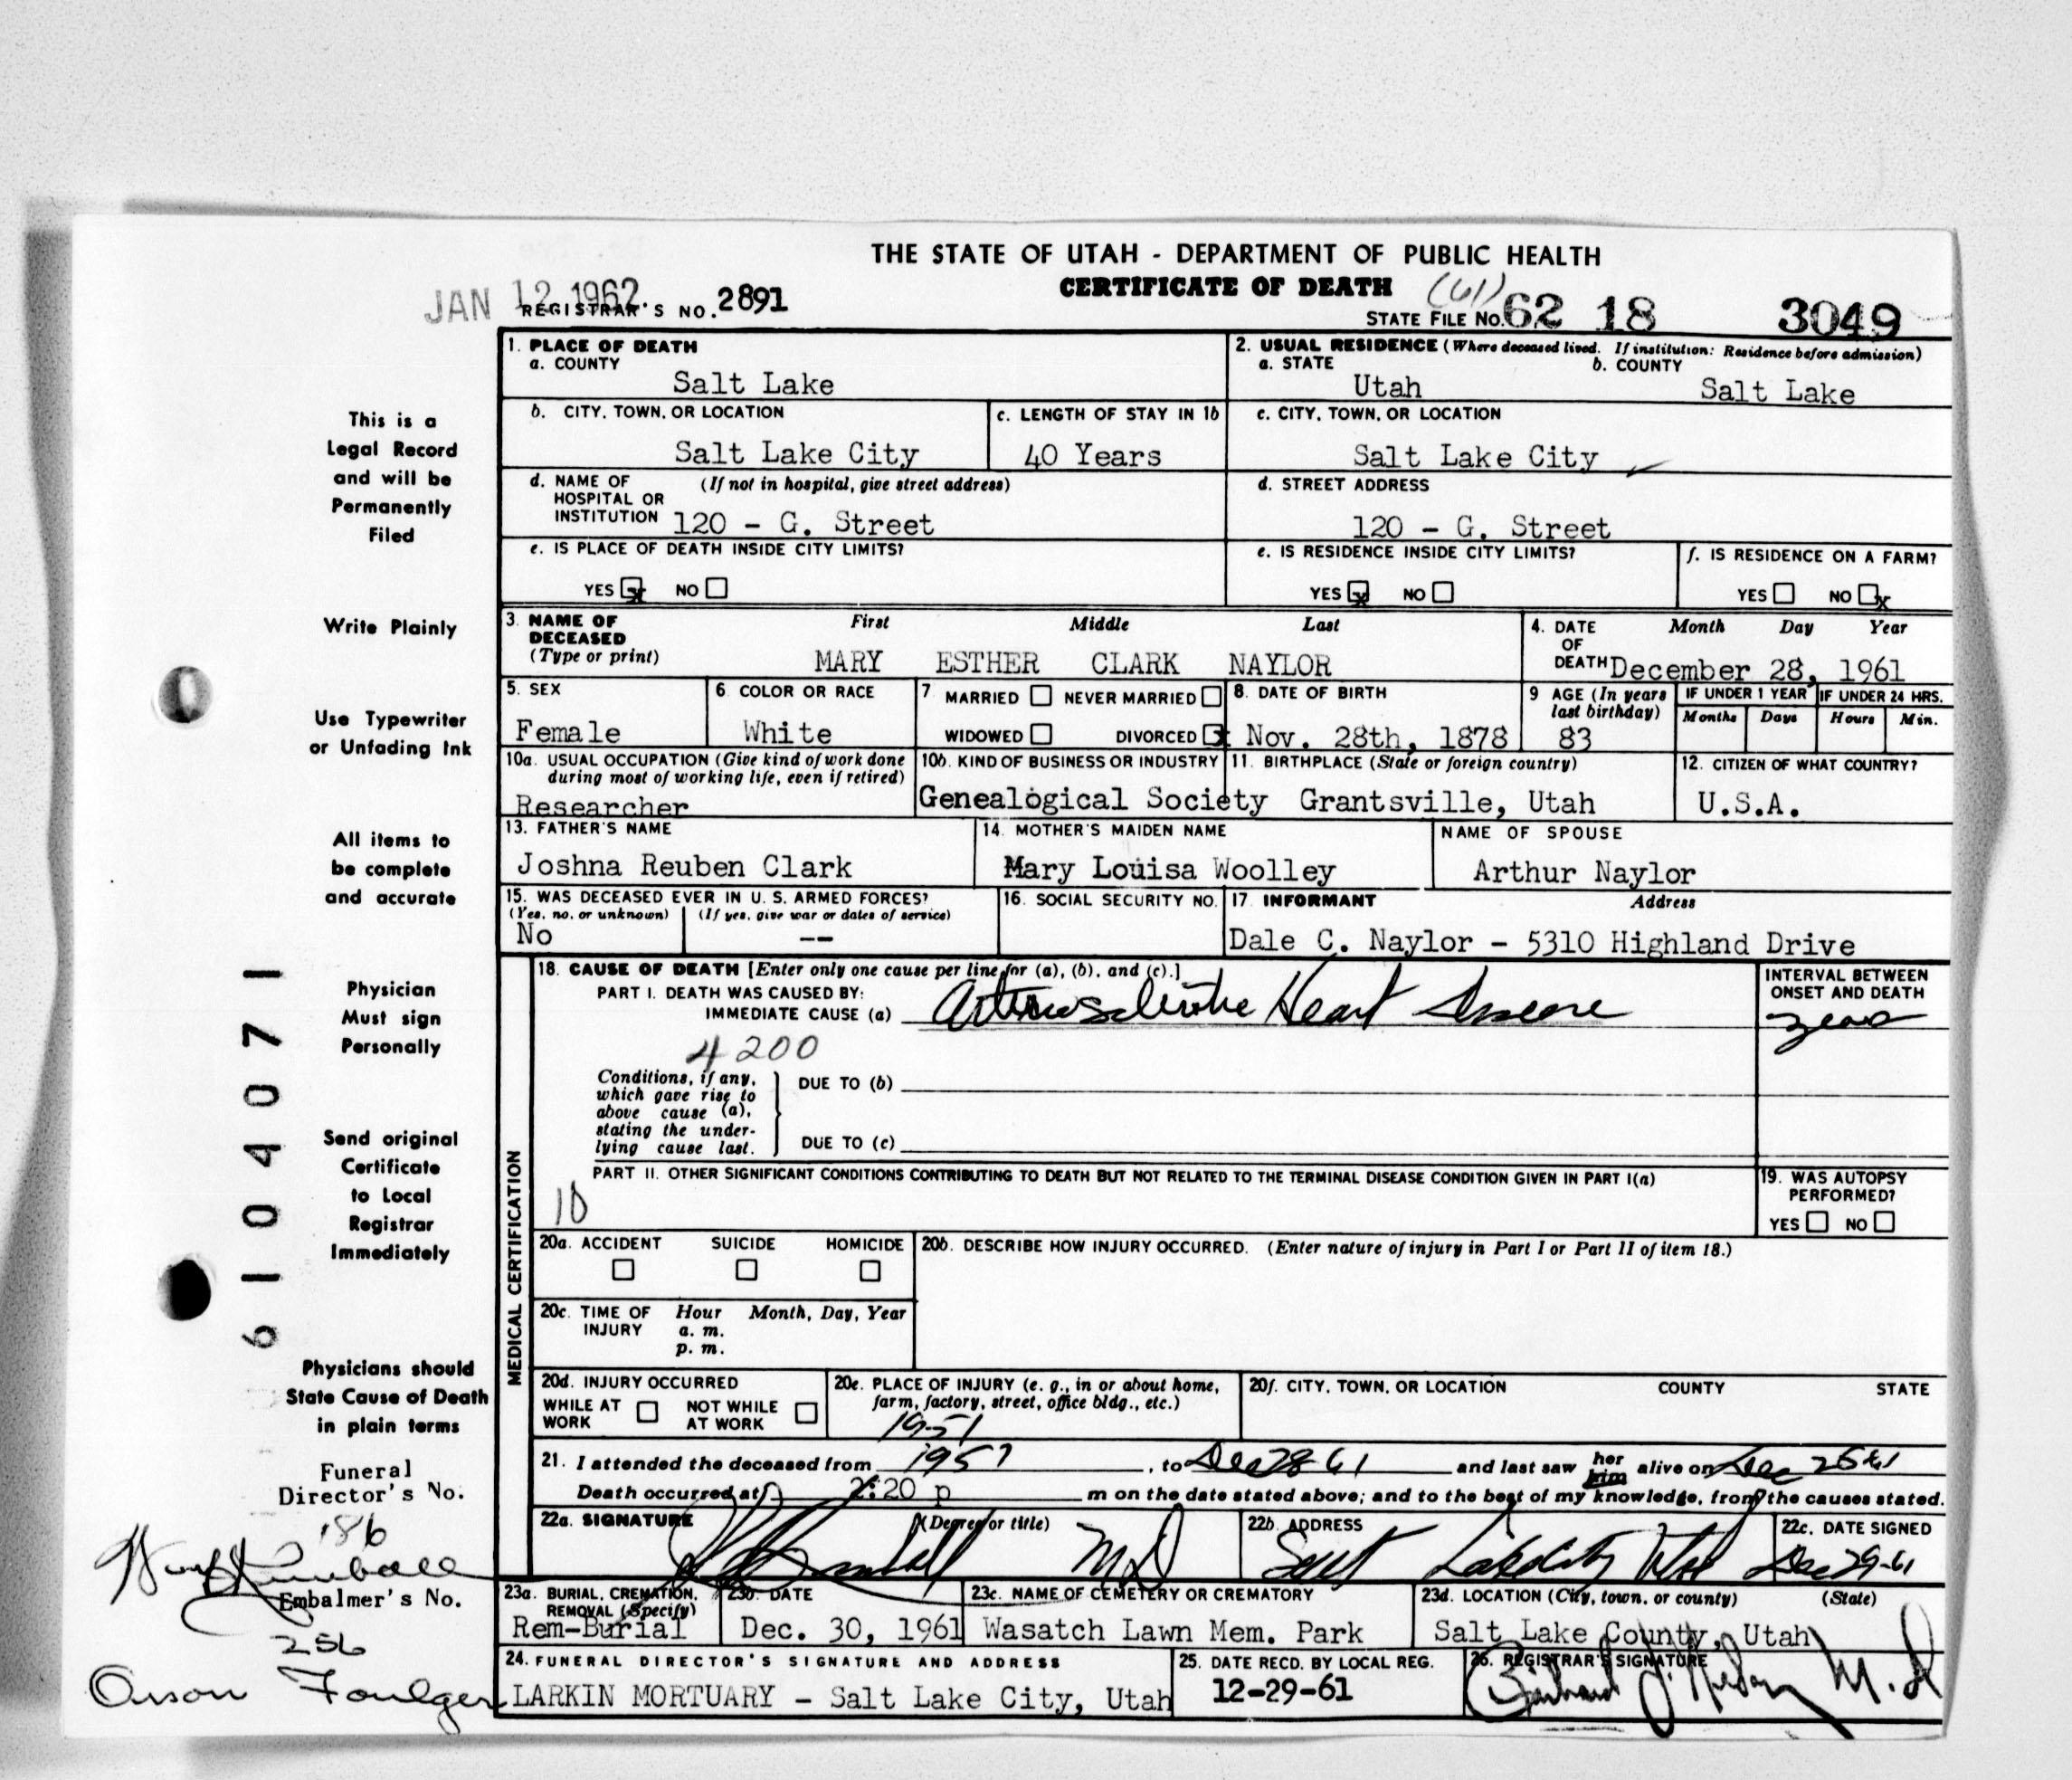 THE STATE OF UTAH - DEPARTMENT OF PUBLIC HEALTH
CERTIFICATE OF DEATH
JAN 12 1962.
REGISTRAR'S NO. 2891
(61)
STATE FILE NO. 62 18 3049
1. PLACE OF DEATH
a. COUNTY
Salt Lake
2. USUAL RESIDENCE (Where deceased lived. If institution: Residence before admission)
a. STATE b. COUNTY
Utah Salt Lake
b. CITY, TOWN, OR LOCATION
Salt Lake City
c. LENGTH OF STAY IN 1b
40 Years
c. CITY, TOWN, OR LOCATION
Salt Lake City
d. NAME OF (If not in hospital, give street address)
HOSPITAL OR
INSTITUTION 120 - G. Street
d. STREET ADDRESS
120 - G. Street
e. IS PLACE OF DEATH INSIDE CITY LIMITS?
YES x NO
e. IS RESIDENCE INSIDE CITY LIMITS?
YES x NO
f. IS RESIDENCE ON A FARM?
YES NO x
3. NAME OF First Middle Last
DECEASED
(Type or print) MARY ESTHER CLARK NAYLOR
4. DATE Month Day Year
OF
DEATH December 28, 1961
5. SEX
Female
6. COLOR OR RACE
White
7. MARRIED NEVER MARRIED
WIDOWED DIVORCED x
8. DATE OF BIRTH
Nov. 28th, 1878
9 AGE (In years
last birthday)
83
IF UNDER 1 YEAR
Months Days
IF UNDER 24 HRS.
Hours Min.
10a. USUAL OCCUPATION (Give kind of work done
during most of working life, even if retired)
Researcher
10b. KIND OF BUSINESS OR INDUSTRY
Genealogical Society
11. BIRTHPLACE (State or foreign country)
Grantsville, Utah
12. CITIZEN OF WHAT COUNTRY?
U.S.A.
13. FATHER'S NAME
Joshna Reuben Clark
14. MOTHER'S MAIDEN NAME
Mary Louisa Woolley
NAME OF SPOUSE
Arthur Naylor
15. WAS DECEASED EVER IN U. S. ARMED FORCES?
(Yes, no, or unknown) (If yes, give war or dates of service)
No --
16. SOCIAL SECURITY NO.
17. INFORMANT Address
Dale C. Naylor - 5310 Highland Drive
MEDICAL CERTIFICATION
18. CAUSE OF DEATH [Enter only one cause per line for (a), (b), and (c).]
PART I. DEATH WAS CAUSED BY:
IMMEDIATE CAUSE (a) Heart
INTERVAL BETWEEN
ONSET AND DEATH
years
4200
Conditions, if any,
which gave rise to
above cause (a),
stating the under-
lying cause last.
DUE TO (b)
DUE TO (c)
PART II. OTHER SIGNIFICANT CONDITIONS CONTRIBUTING TO DEATH BUT NOT RELATED TO THE TERMINAL DISEASE CONDITION GIVEN IN PART I(a)
10
19. WAS AUTOPSY
PERFORMED?
YES NO
20a. ACCIDENT SUICIDE HOMICIDE
20b. DESCRIBE HOW INJURY OCCURRED. (Enter nature of injury in Part I or Part II of item 18.)
20c. TIME OF Hour Month, Day, Year
INJURY a. m.
p. m.
20d. INJURY OCCURRED
WHILE AT NOT WHILE
WORK AT WORK
20e. PLACE OF INJURY (e. g., in or about home,
farm, factory, street, office bldg., etc.)
20f. CITY, TOWN, OR LOCATION COUNTY STATE
1951
21. I attended the deceased from 1957, to Dec 28 61 and last saw her him alive on Dec 61
Death occurred at 2:20 p m on the date stated above; and to the best of my knowledge, from the causes stated.
22a. SIGNATURE (Degree or title)
MD
22b. ADDRESS
Salt Lake City Utah
22c. DATE SIGNED
Dec 29-61
23a. BURIAL, CREMATION,
REMOVAL (Specify)
Rem-Burial
23b. DATE
Dec. 30, 1961
23c. NAME OF CEMETERY OR CREMATORY
Wasatch Lawn Mem. Park
23d. LOCATION (City, town, or county) (State)
Salt Lake County, Utah
24. FUNERAL DIRECTOR'S SIGNATURE AND ADDRESS
LARKIN MORTUARY - Salt Lake City, Utah
25. DATE RECD. BY LOCAL REG.
12-29-61
26. REGISTRAR'S SIGNATURE
M.D
This is a
Legal Record
and will be
Permanently
Filed
Write Plainly
Use Typewriter
or Unfading Ink
All items to
be complete
and accurate
Physician
Must sign
Personally
Send original
Certificate
to Local
Registrar
Immediately
Physicians should
State Cause of Death
in plain terms
Funeral
Director's No.
186
Kimball
Embalmer's No.
256
Orson Foulger
6104071